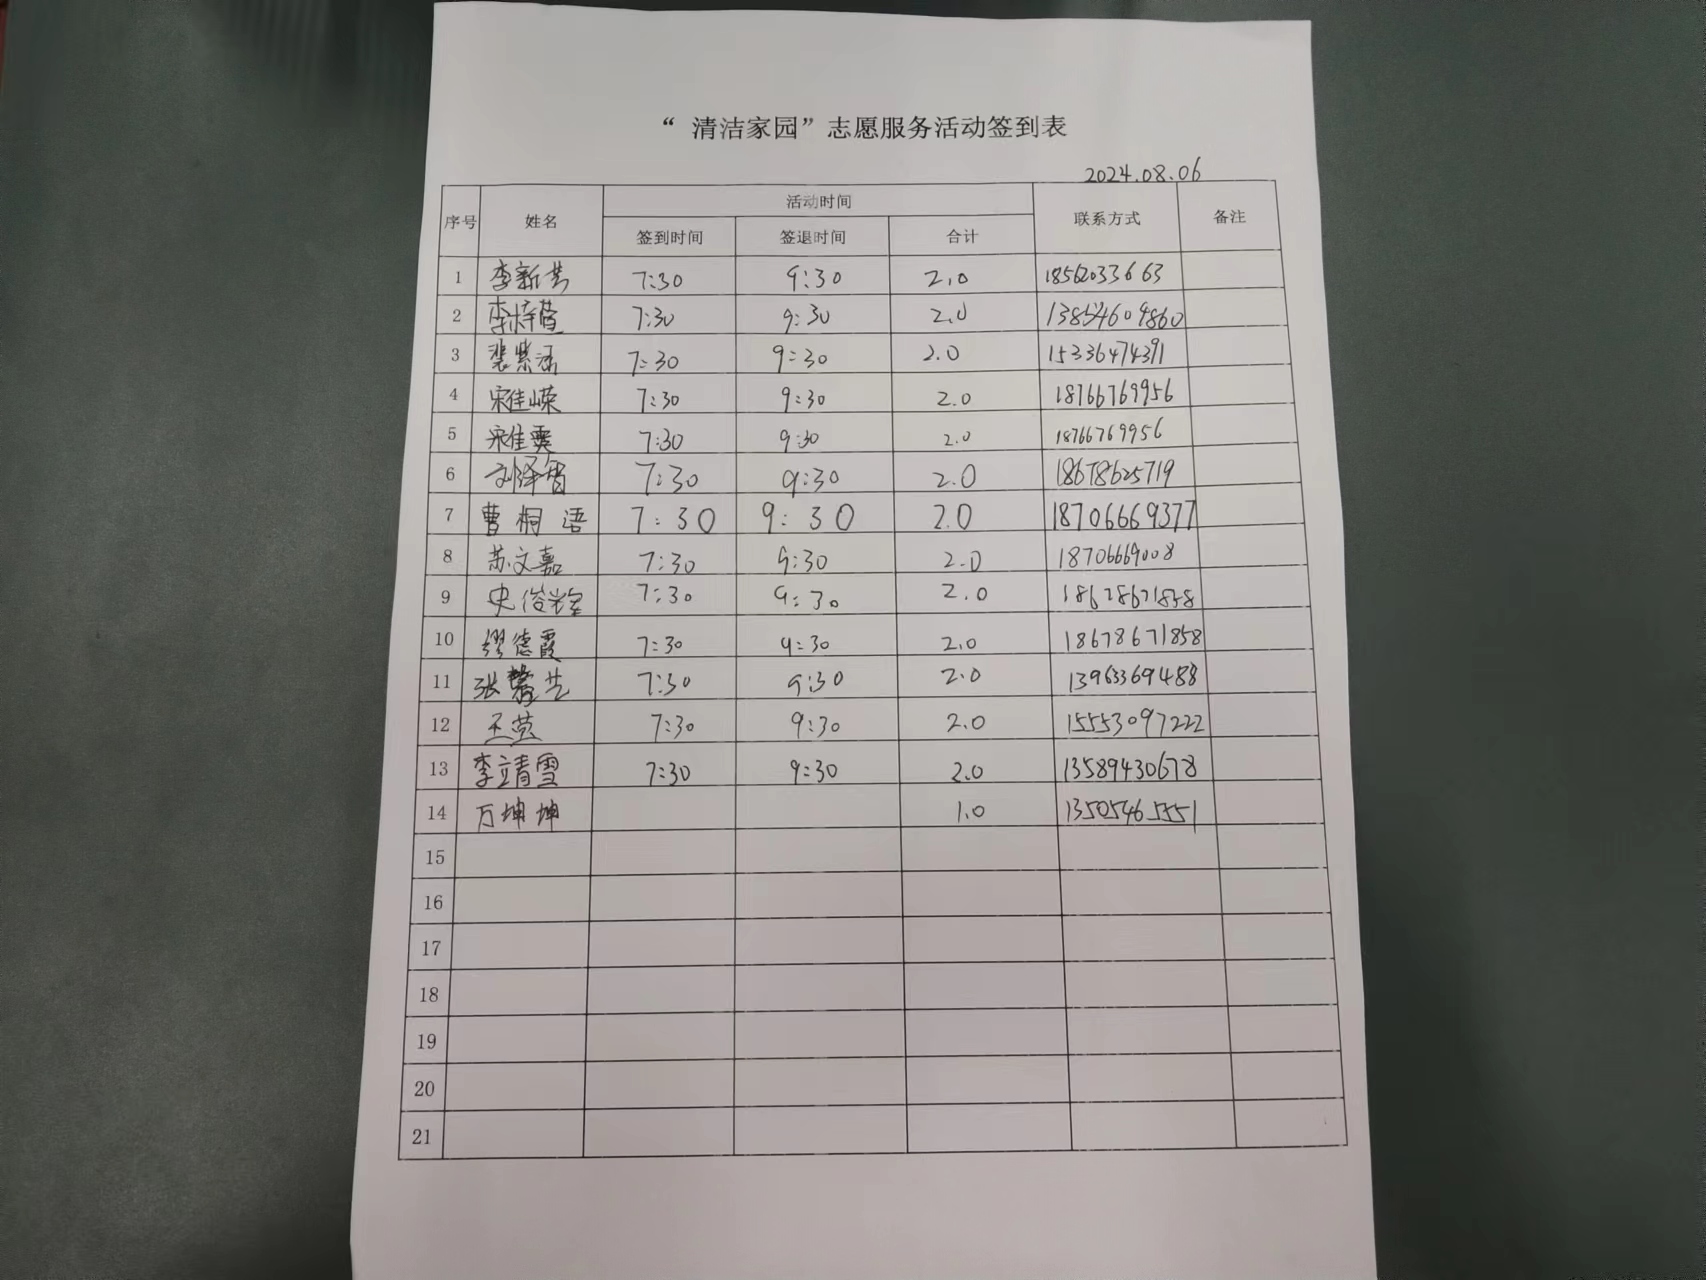 “ 清洁家园”志愿服务活动签到表
2024.08.06
序号 姓名 活动时间 联系方式 备注
签到时间 签退时间 合计
1 李新艺 7:30 9:30 2.0 18562033663
2 7:30 9:30 2.0 13854609860
3 裴紫涵 7:30 9:30 2.0 15336474391
4 宋佳嵘 7:30 9:30 2.0 18766769956
5 宋佳霓 7:30 9:30 2.0 18766769956
6 刘泽智 7:30 9:30 2.0 18678625719
7 曹桐语 7:30 9:30 2.0 18706669377
8 苏文嘉 7:30 9:30 2.0 18706669008
9 史俊辉 7:30 9:30 2.0 18678671858
10 缪德霞 7:30 9:30 2.0 18678671858
11 张馨艺 7:30 9:30 2.0 13963369488
12 王萸 7:30 9:30 2.0 15553097222
13 李靖雪 7:30 9:30 2.0 13589430678
14 万坤坤 1.0 13505465551
15
16
17
18
19
20
21